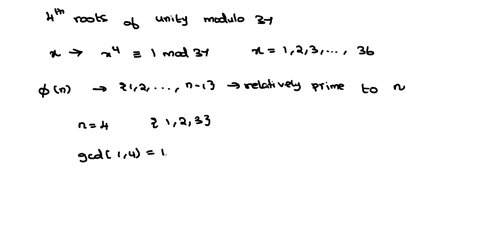 4th roots of unity modulo 37
x → x⁴ ≡ 1 mod 37 x = 1,2,3,..., 36
φ(n) → {1,2,..., n-1} → relatively prime to n
n=4 {1,2,3}
gcd(1,4) = 1